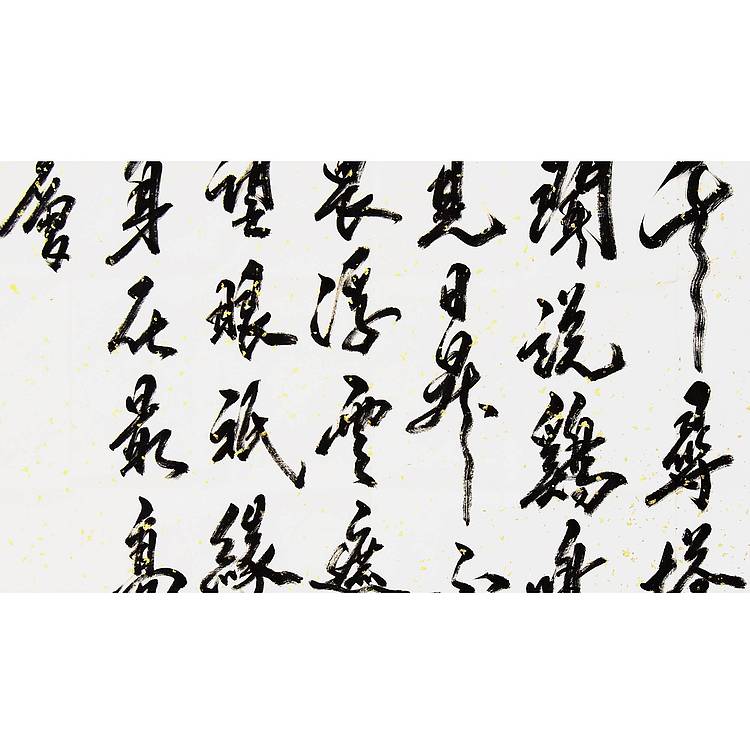 千尋塔
聞說鷄鳴
見日昇不
畏浮雲遮
望眼祇緣
身在最高
層